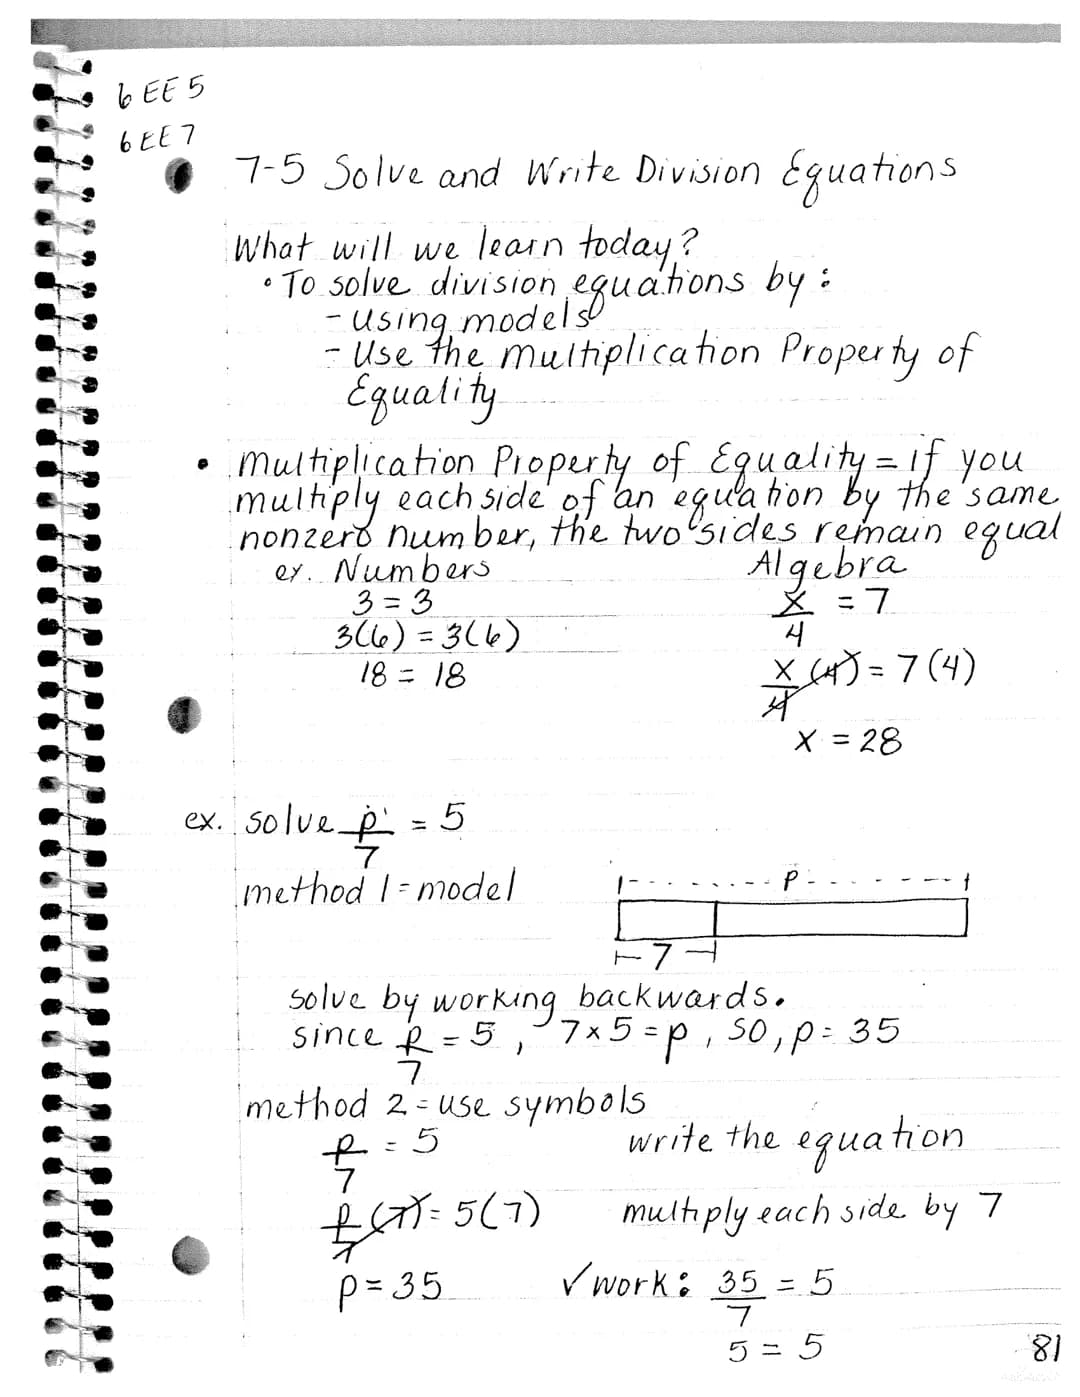 6 EE 5
6 EE 7
7-5 Solve and Write Division Equations
What will we learn today?
• To solve division equations by:
- using models
- Use the multiplication Property of
Equality
• multiplication Property of Equality = if you
multiply each side of an equation by the same
nonzero number, the two sides remain equal
ex. Numbers Algebra
3 = 3 x/4 = 7
3(6) = 3(6) x/4 (4) = 7(4)
18 = 18 x = 28
ex. solve p/7 = 5
method 1 = model
p
7
solve by working backwards.
since p/7 = 5, 7×5 = p, so, p = 35
method 2 = use symbols
p/7 = 5 write the equation
p/7 (7) = 5(7) multiply each side by 7
p = 35 ✓ work: 35/7 = 5
5 = 5
81